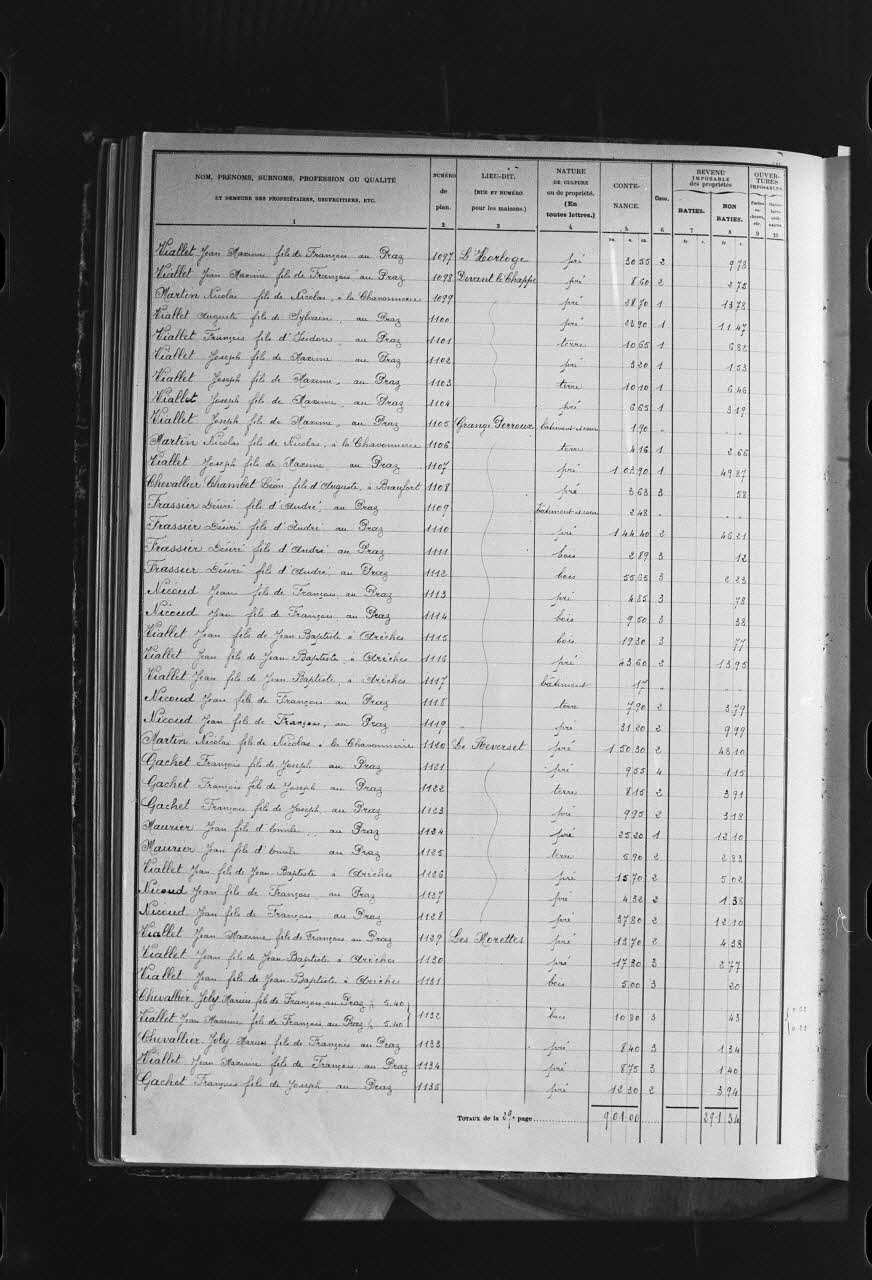 NOM, PRÉNOMS, SURNOMS, PROFESSION OU QUALITÉ ET DEMEURE DES PROPRIÉTAIRES, USUFRUITIERS, ETC. NUMÉRO de plan. LIEU-DIT. (RUE ET NUMÉRO pour les maisons.) NATURE DE CULTURE ou de propriété. (En toutes lettres.) CONTENANCE. Classe. REVENU IMPOSABLE des propriétés BATIES. NON BATIES. OUVERTURES IMPOSABLES
1 2 3 4 5 6 7 8 9 10
Ha. a. ca. fr. c. fr. c.
Viallet Jean Maxime fils de François au Praz 1097 L'Horloge pré 30 55 2 9 78
Viallet Jean Maxime fils de François au Praz 1098 Devant le Chappe pré 8 60 2 2 75
Martin Nicolas fils de Nicolas, à la Chavonnerie 1099 pré 28 70 1 13 78
Viallet Auguste fils de Sylvain, au Praz 1100 pré 23 90 1 11 47
Viallet François fils d'Isidore, au Praz 1101 terre 10 65 1 6 82
Viallet Joseph fils de Maxime au Praz 1102 pré 3 20 1 1 53
Viallet Joseph fils de Maxime, au Praz 1103 terre 10 10 1 6 46
Viallet Joseph fils de Maxime, au Praz 1104 pré 6 65 1 3 19
Viallet Joseph fils de Maxime, au Praz 1105 Grange Perroux bâtiment et cour 1 90 " " "
Martin Nicolas fils de Nicolas, à la Chavonnerie 1106 terre 4 16 1 2 66
Viallet Joseph fils de Maxime, au Praz 1107 pré 1 03 90 1 49 87
Chevallier Chambet Léon fils d'Auguste, à Beaufort 1108 pré 3 63 3 58
Frassier Désiré fils d'André, au Praz 1109 bâtiment et cour 2 48 " " "
Frassier Désiré fils d'André au Praz 1110 pré 1 44 40 2 46 21
Frassier Désiré fils d'André au Praz 1111 bois 2 89 3 12
Frassier Désiré fils d'André, au Praz 1112 bois 55 65 3 2 23
Nicoud Jean fils de François, au Praz 1113 pré 4 85 3 78
Nicoud Jean fils de François, au Praz 1114 bois 9 50 3 38
Viallet Jean fils de Jean Baptiste à Arêches 1115 bois 19 30 3 77
Viallet Jean fils de Jean-Baptiste, à Arêches 1116 pré 43 60 2 13 95
Viallet Jean fils de Jean-Baptiste, à Arêches 1117 bâtiment 17 " " "
Nicoud Jean fils de François au Praz 1118 terre 7 90 2 3 79
Nicoud Jean fils de François, au Praz 1119 pré 31 20 2 9 99
Martin Nicolas fils de Nicolas, à la Chavonnerie 1120 Le Reverset pré 1 50 30 2 48 10
Gachet François fils de Joseph au Praz 1121 pré 9 55 4 1 15
Gachet François fils de Joseph, au Praz 1122 terre 8 15 2 3 91
Gachet François fils de Joseph, au Praz 1123 pré 9 95 2 3 18
Maurier Jean fils d'Emile, au Praz 1124 pré 25 20 1 12 10
Maurier Jean fils d'Emile au Praz 1125 terre 5 90 2 2 83
Viallet Jean fils de Jean-Baptiste à Arêches 1126 pré 15 70 2 5 02
Nicoud Jean fils de François, au Praz 1127 pré 4 32 2 1 38
Nicoud Jean fils de François au Praz 1128 pré 37 80 2 12 10
Viallet Jean Maxime fils de François au Praz 1129 Les Morettes pré 13 70 2 4 38
Viallet Jean fils de Jean-Baptiste à Arêches 1130 pré 17 30 3 2 77
Viallet Jean fils de Jean-Baptiste à Arêches 1131 bois 5 00 3 20
Chevallier-Joly Marius fils de François au Praz 5.40
Viallet Jean Maxime fils de François au Praz 5.40 1132 bois 10 80 3 43
Chevallier-Joly Marius fils de François au Praz 1133 pré 8 40 3 1 34
Viallet Jean Maxime fils de François, au Praz 1134 pré 8 75 3 1 40
Gachet François fils de Joseph, au Praz 1135 pré 12 30 2 3 94
TOTAUX de la 29e page 9 01 00 291 34